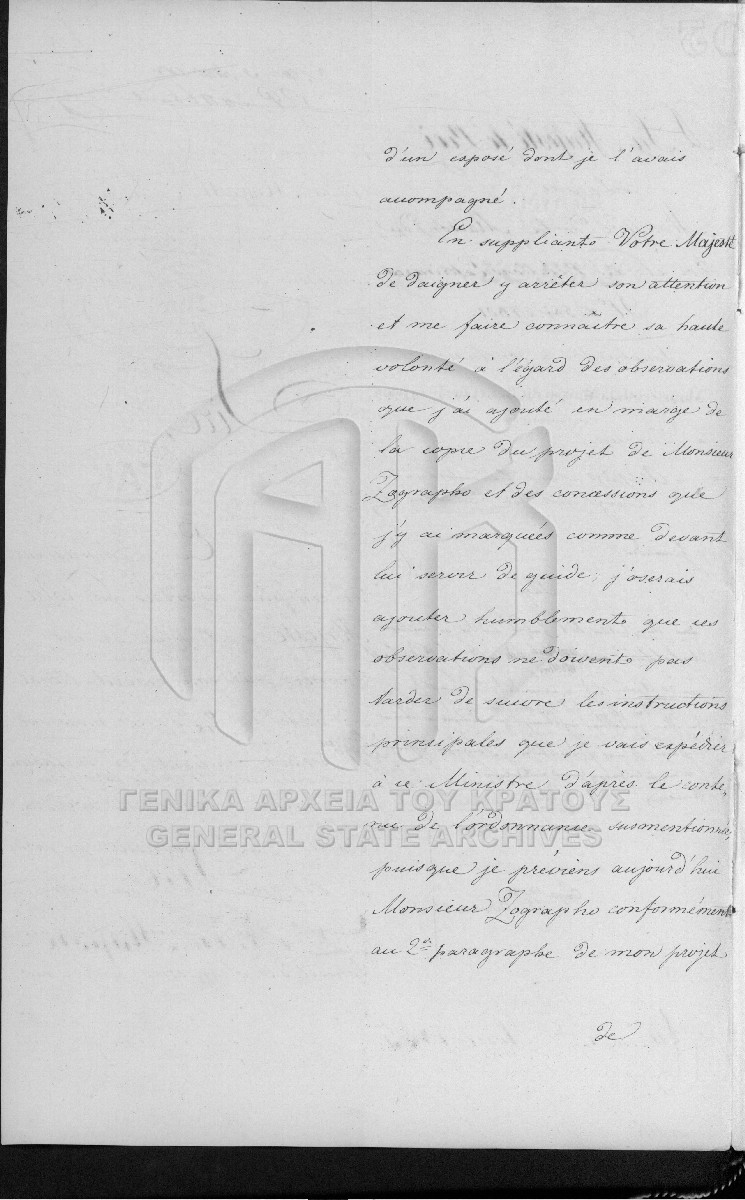 d'un exposé dont je l'avais
accompagné.
En suppliant Votre Majesté
de daigner y arrêter son attention
et me faire connaître sa haute
volonté à l'égard des observations
que j'ai ajouté en marge de
la copie du projet de Monsieur
Zographo et des concessions que
j'y ai marquées comme devant
lui servir de guide, j'oserais
ajouter humblement que ces
observations ne doivent pas
tarder de suivre les instructions
principales que je vais expédier
à ce Ministre d'après le conte-
nu de l'ordonnance susmentionnée,
puisque je préviens aujourd'hui
Monsieur Zographo conformément
au 2d paragraphe de mon projet
de
ΓΕΝΙΚΑ ΑΡΧΕΙΑ ΤΟΥ ΚΡΑΤΟΥΣ
GENERAL STATE ARCHIVES